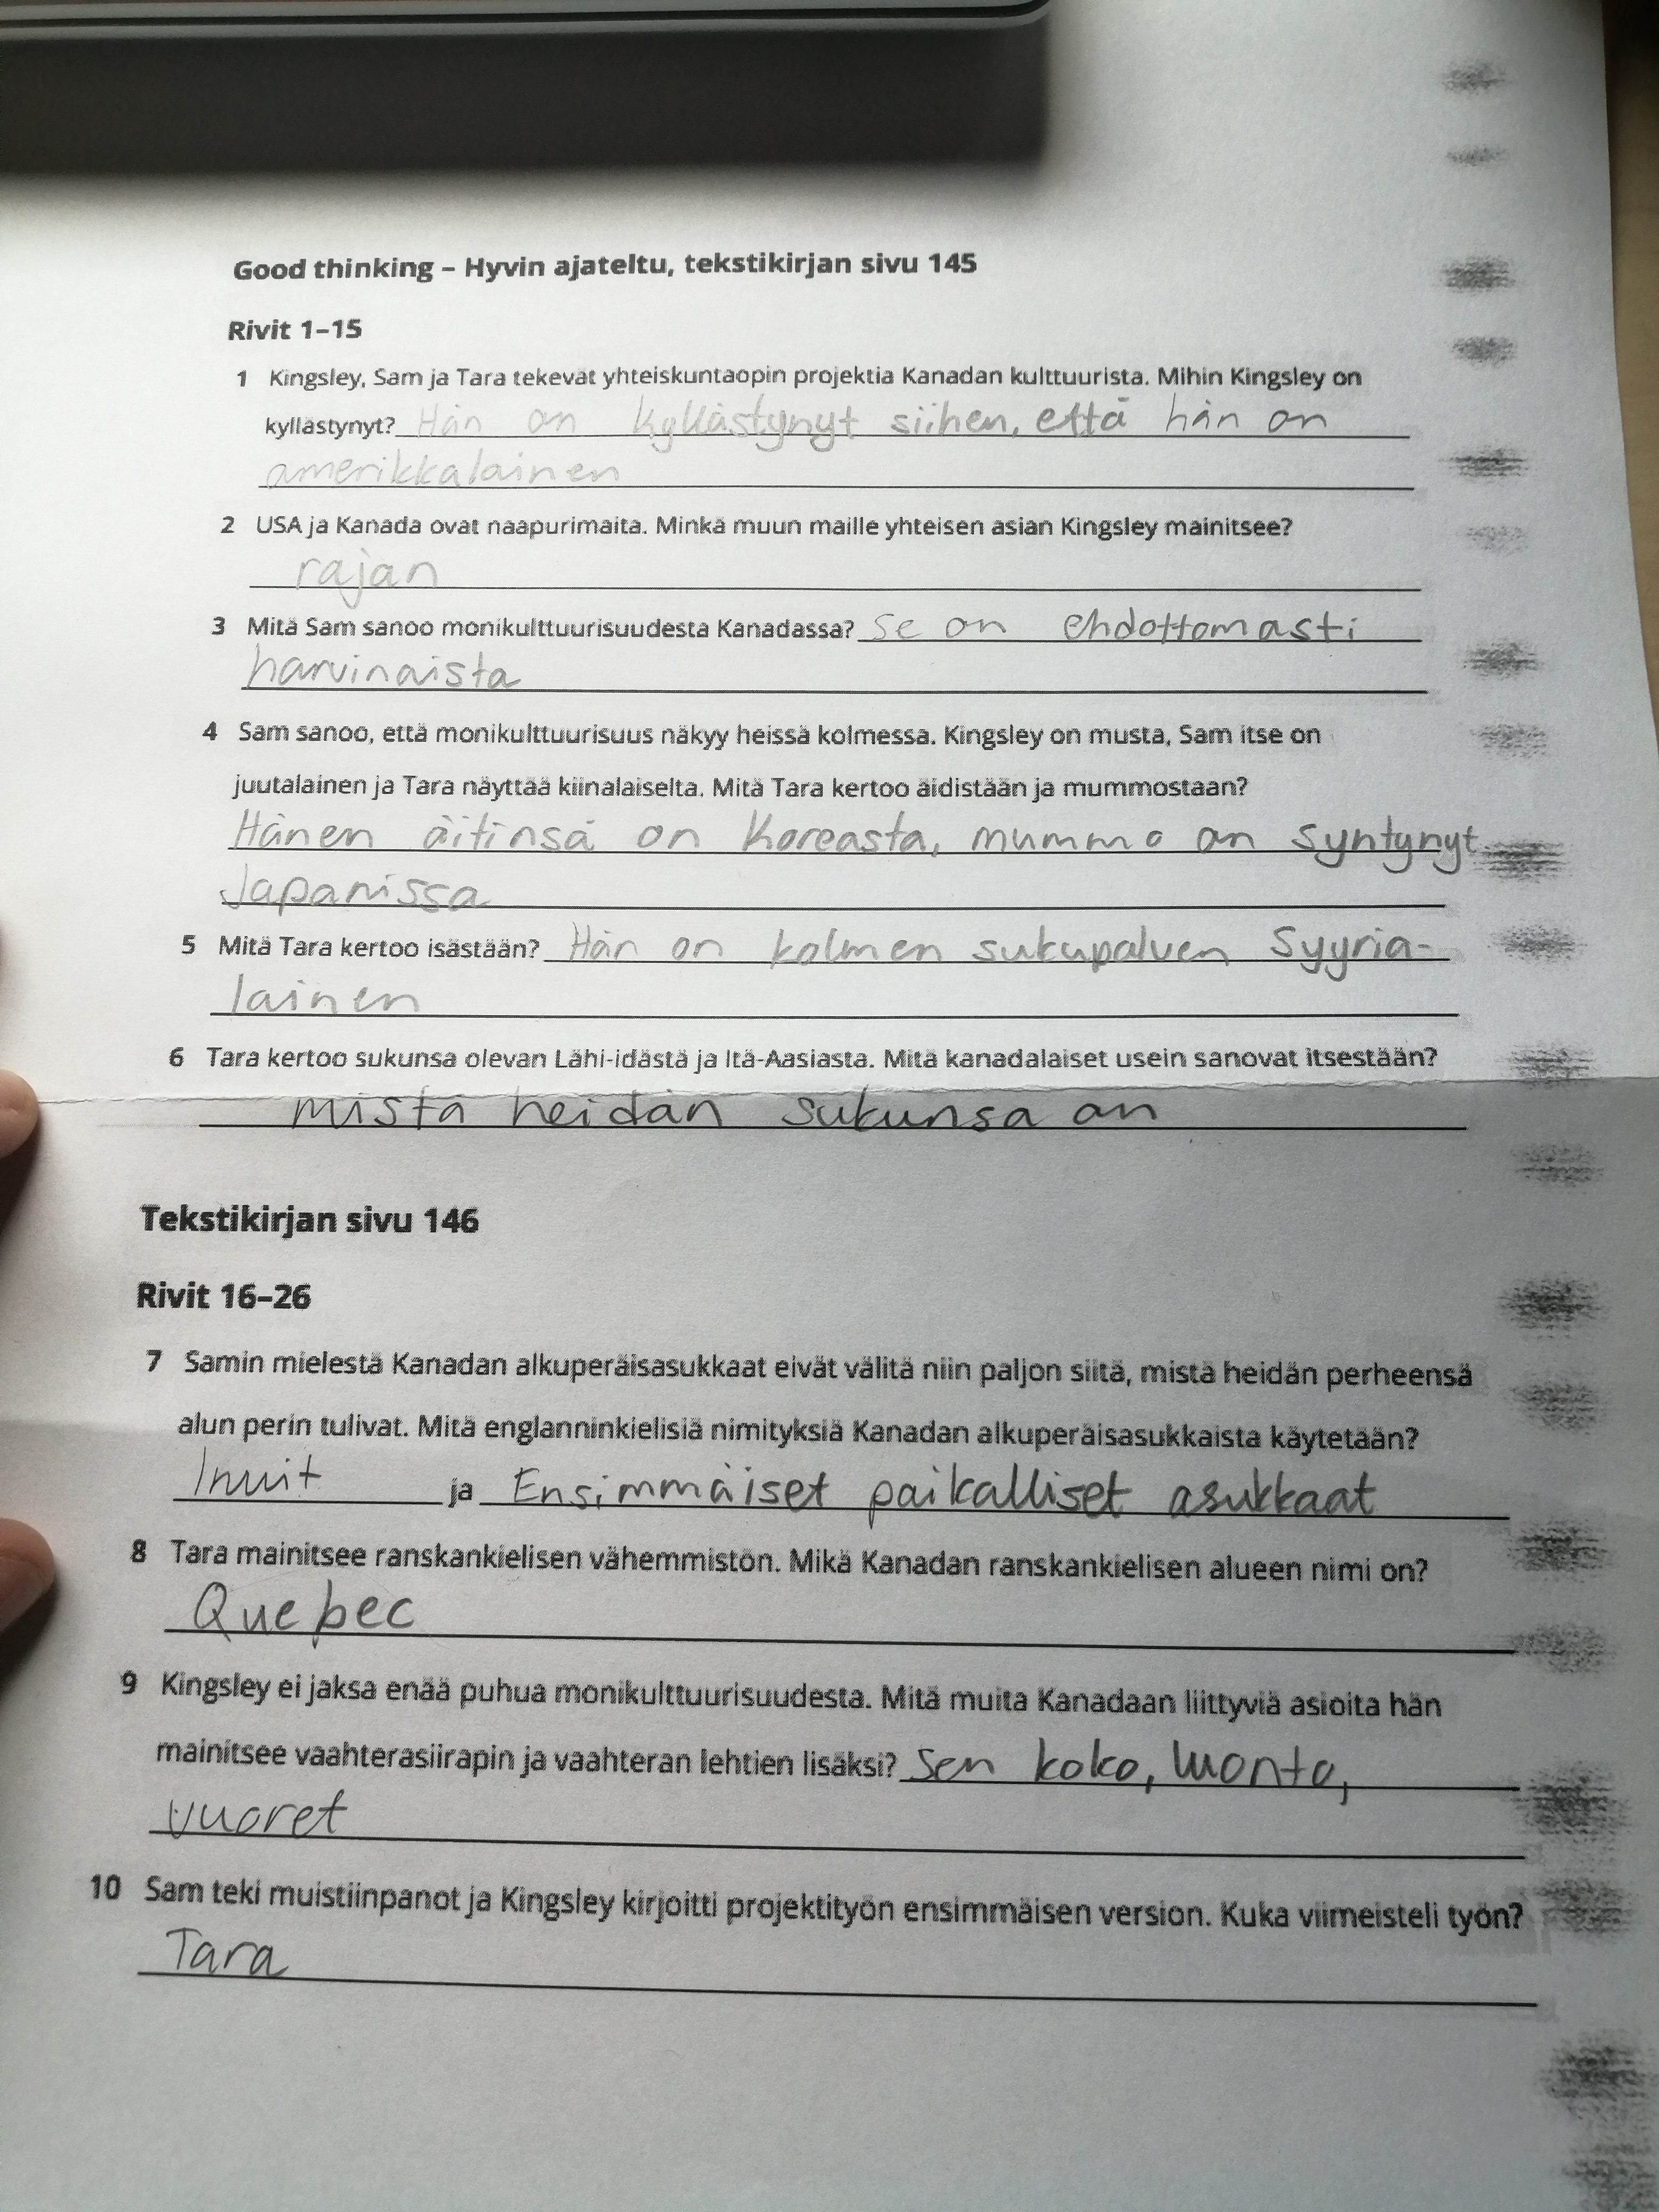 Good thinking – Hyvin ajateltu, tekstikirjan sivu 145
Rivit 1–15
1 Kingsley, Sam ja Tara tekevät yhteiskuntaopin projektia Kanadan kulttuurista. Mihin Kingsley on
kyllästynyt? Hän on kyllästynyt siihen, että hän on
amerikkalainen
2 USA ja Kanada ovat naapurimaita. Minkä muun maille yhteisen asian Kingsley mainitsee?
rajan
3 Mitä Sam sanoo monikulttuurisuudesta Kanadassa? se on ehdottomasti
harvinaista
4 Sam sanoo, että monikulttuurisuus näkyy heissä kolmessa. Kingsley on musta, Sam itse on
juutalainen ja Tara näyttää kiinalaiselta. Mitä Tara kertoo äidistään ja mummostaan?
Hänen äitinsä on Koreasta, mummo on syntynyt
Japanissa
5 Mitä Tara kertoo isästään? Hän on kolmen sukupolven Syyria-
lainen
6 Tara kertoo sukunsa olevan Lähi-idästä ja Itä-Aasiasta. Mitä kanadalaiset usein sanovat itsestään?
mistä heidän sukunsa on
Tekstikirjan sivu 146
Rivit 16–26
7 Samin mielestä Kanadan alkuperäisasukkaat eivät välitä niin paljon siitä, mistä heidän perheensä
alun perin tulivat. Mitä englanninkielisiä nimityksiä Kanadan alkuperäisasukkaista käytetään?
Inuit ja Ensimmäiset paikalliset asukkaat
8 Tara mainitsee ranskankielisen vähemmistön. Mikä Kanadan ranskankielisen alueen nimi on?
Quebec
9 Kingsley ei jaksa enää puhua monikulttuurisuudesta. Mitä muita Kanadaan liittyviä asioita hän
mainitsee vaahterasiirapin ja vaahteran lehtien lisäksi? Sen koko, luonto,
vuoret
10 Sam teki muistiinpanot ja Kingsley kirjoitti projektityön ensimmäisen version. Kuka viimeisteli työn?
Tara